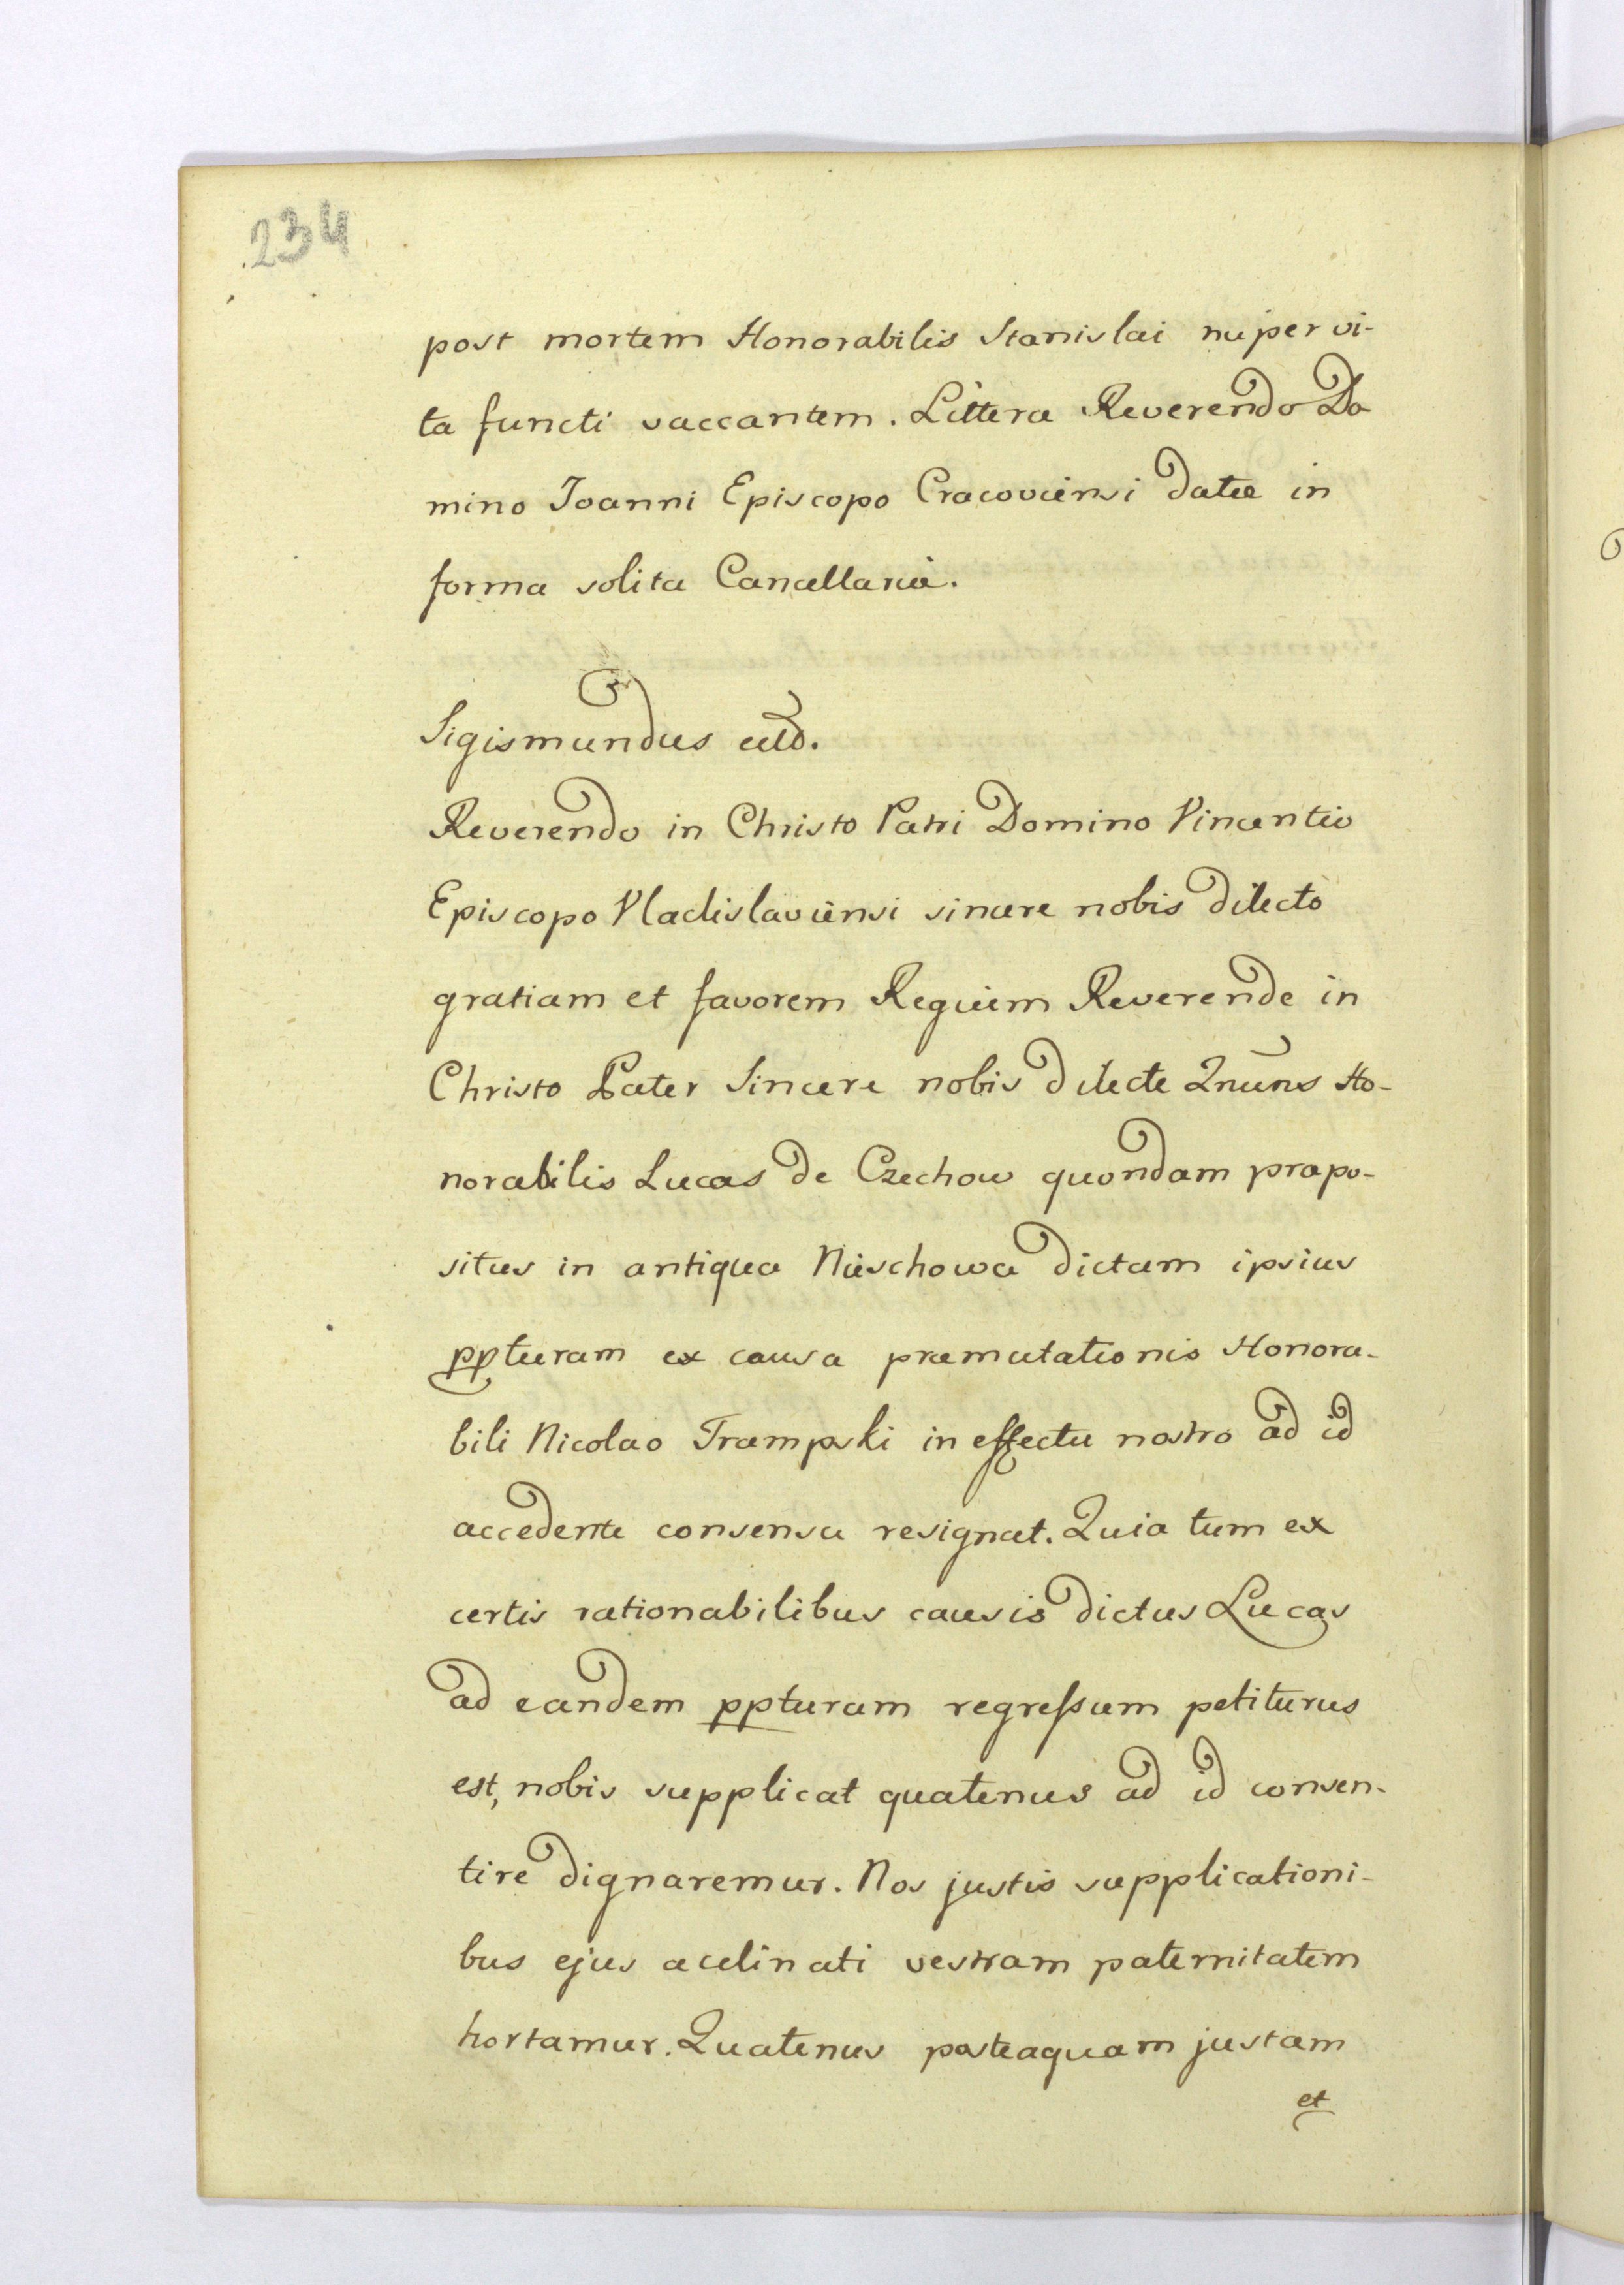 234
post mortem Honorabilis Stanislai nuper vi-
ta functi vaccantem. Litterae Reverendo Do
mino Joanni Episcopo Cracoviensi datae in
forma solita Cancellariae.
Sigismundus etc.
Reverendo in Christo Patri Domino Vincentio
Episcopo Vladislaviensi sincere nobis dilecto
gratiam et favorem Regium Reverende in
Christo Pater Sincere nobis dilecte Ho-
norabilis Lucas de Czechow quondam praepo-
situs in antiqua Nieschowa dictam ipsius
ppturam ex causa praemutationis Honora-
bili Nicolao Trampski in effectu nostro ad id
accedente consensu resignat. Quia tum ex
certis rationabilibus causis dictus Lucas
ad eandem ppturam regreſsum petiturus
est, nobis supplicat quatenus ad id consen-
tire dignaremur. Nos justis supplicationi-
bus ejus aclinati vestram paternitatem
hortamur. Quatenus posteaquam justam
et